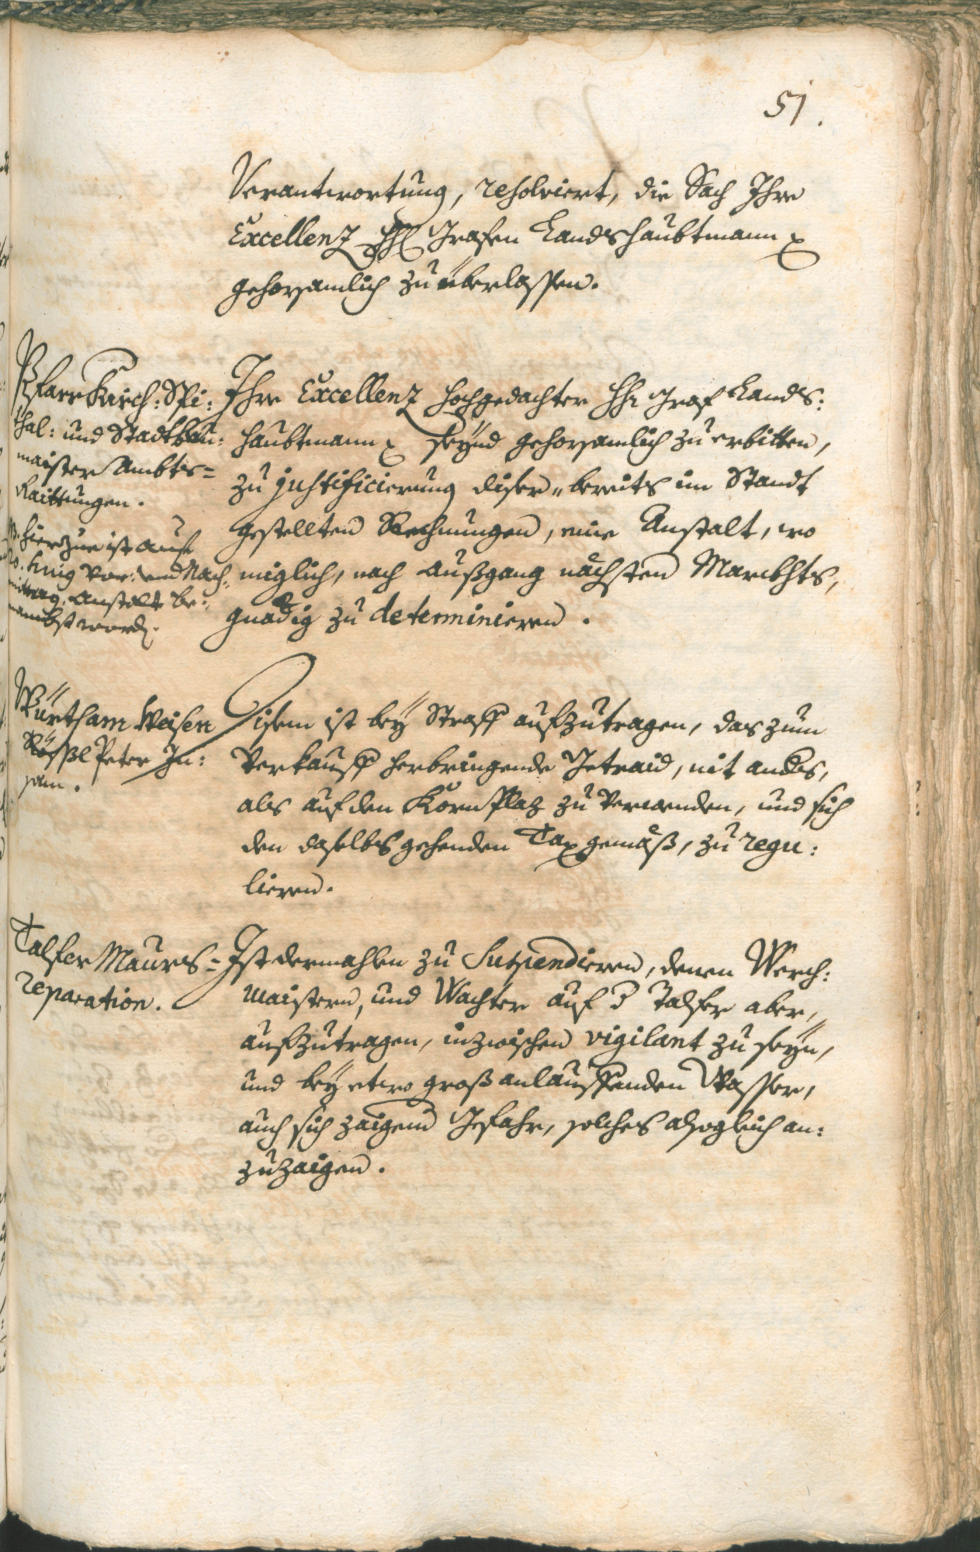 51.
Verantwortung, resolviert, die Sach Ihro
Excellenz HH Grafen Landshaubtmann
gehorsamlich zu überlassen.
PfarrKirch: Spi:
thal: und Stadtbau:
maister Ambts=
Raittungen.
Hierzue ist auf
Nach:
mitag, Anstalt be:
word.
Ihro Excellenz hochgedachter HH Graf Lands:
haubtmann seynd gehorsamlich zu erbitten,
zu justificierung diser, bereits im Standt
gestellten Rechnungen, eine Anstalt, wo
miglich, nach Außgang nächsten Marckhts,
gnädig zu determinieren.
Würth am Weisen
Rössl Peter In:
sam.
Disem ist bey Straff aufzutragen, das zum
Verkauff herbringende Getraid, nit anders,
als auf den Korn Plaz zu verwenden, und sich
den daselbs gehenden Tax gemäß, zu regu:
lieren.
Talfer Maurs=
reparation.
Ist dermahlen zu Suspendieren, denen Werch:
maistern, und Wachter auf d Talfer aber,
aufzutragen, inzwischen vigilant zu seyn,
und bey etwo groß anlauffenden Wasser,
auch sich zaigend Gefahr, solches alsogleich an:
zuzaigen.